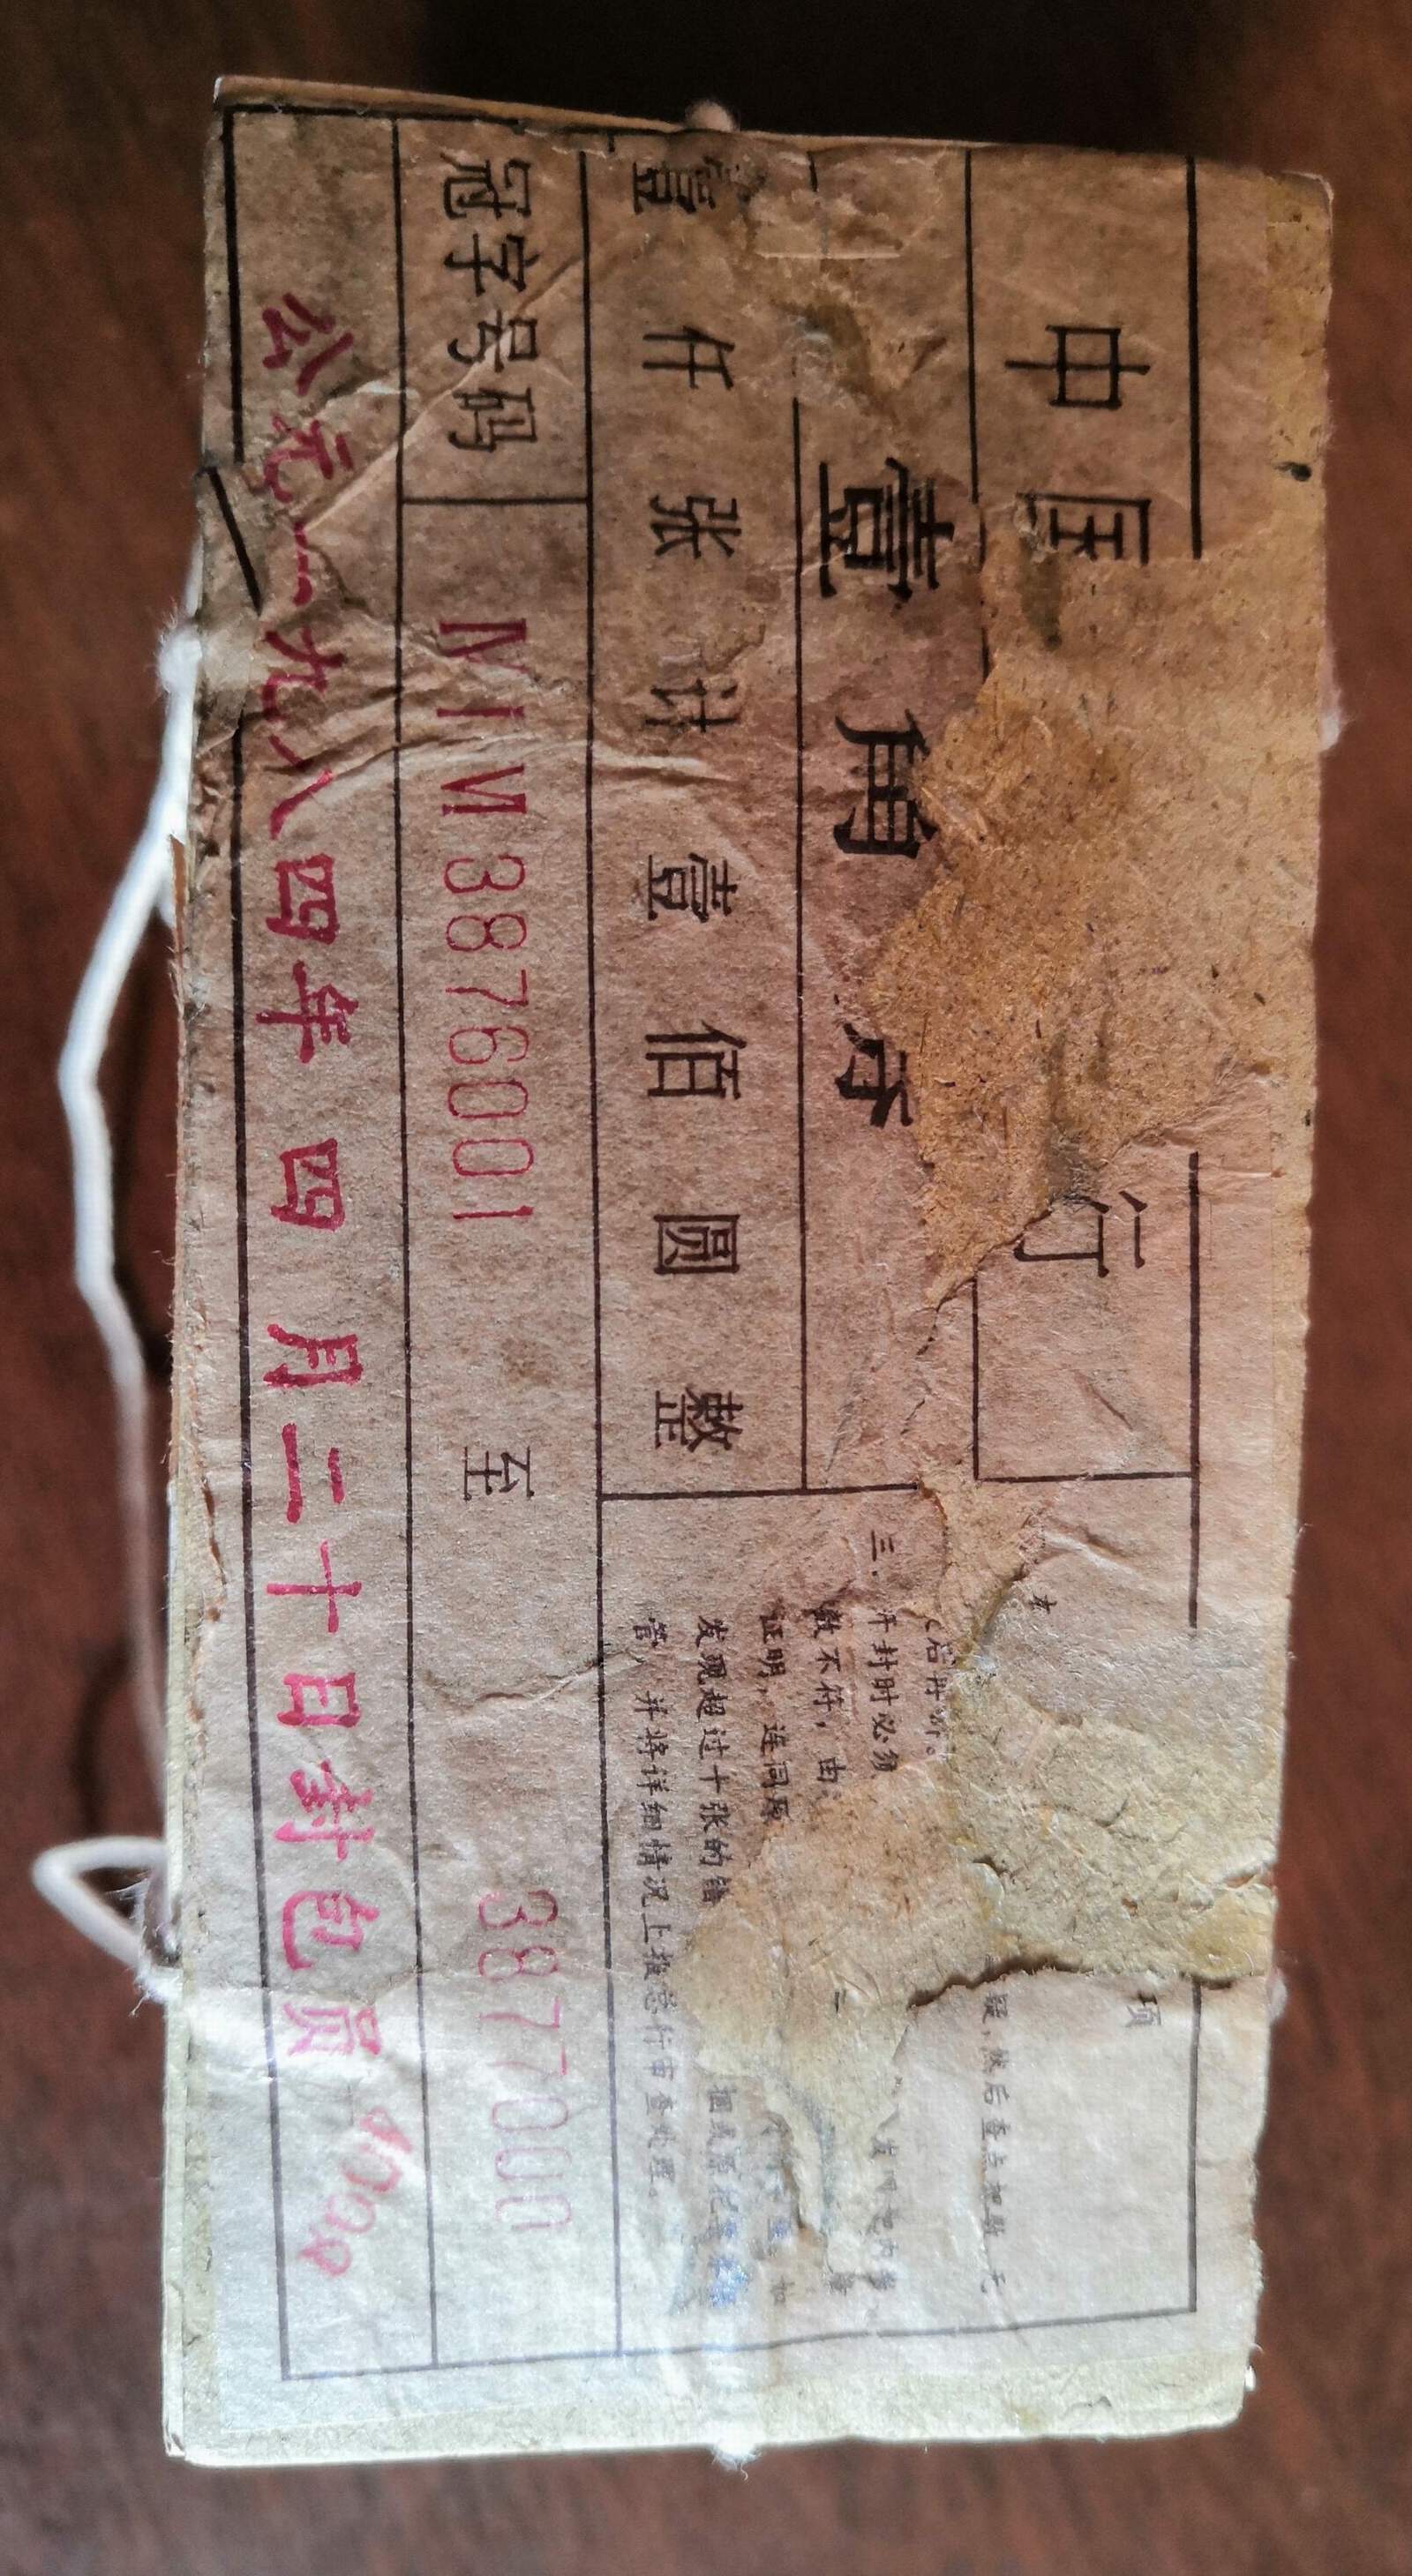 中国 行
壹角券
壹仟张计壹佰圆整
项
疑,然后查点把数 无
后再拆。
三.开封时必须
数不符,由
证明,连同原
发现超过十张的错 捆或原
管)并将详细情况上报总行审查处理。
冠字号码 ⅣⅠⅥ 3876001 至 3877000
公元一九八四年四月二十日封包员